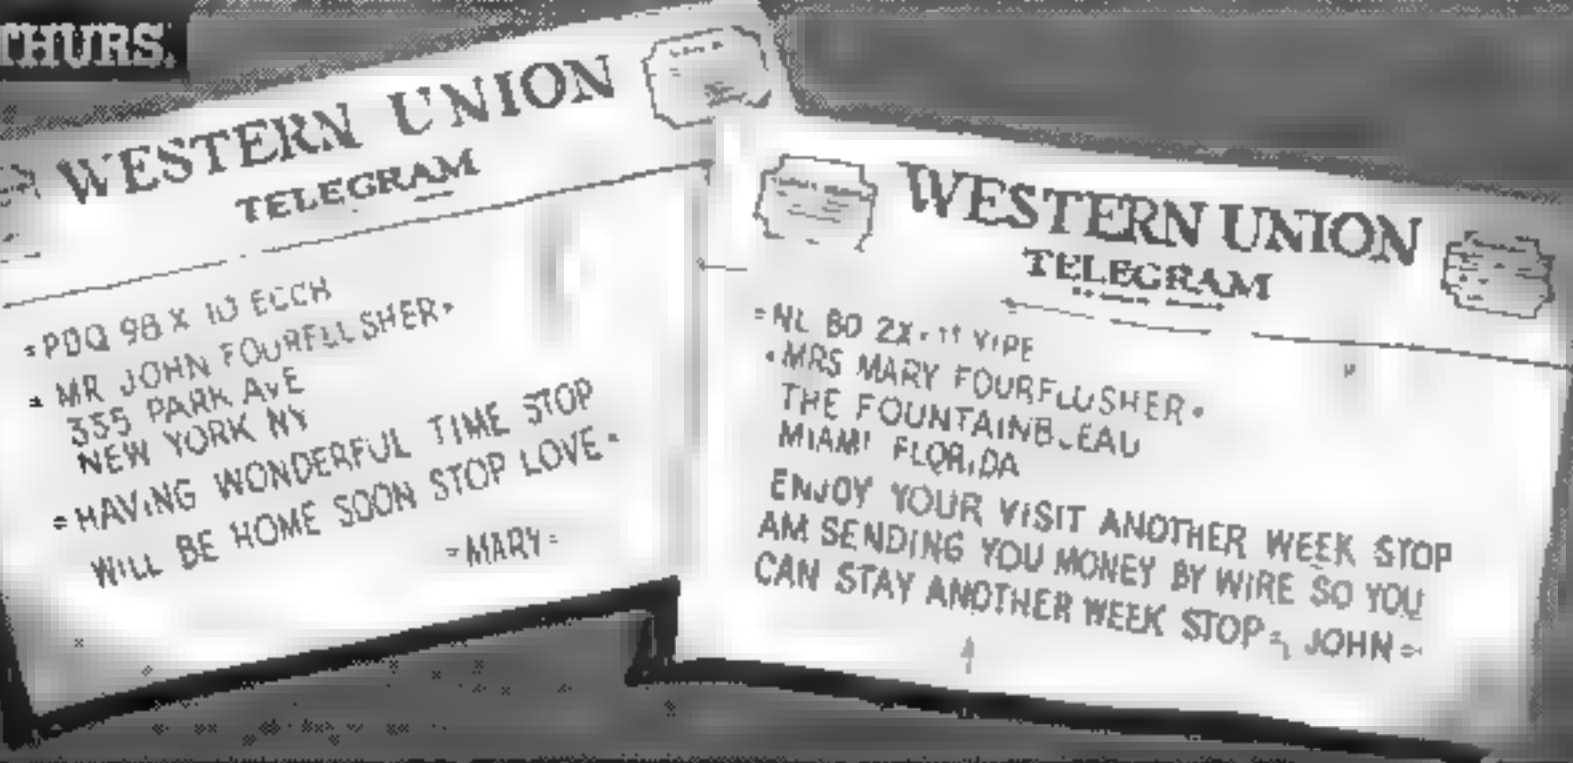 THURS.
WESTERN UNION
TELEGRAM
=PDQ 98 X 10 ECCH
MR JOHN FOURFLUSHER
335 PARK AVE
NEW YORK NY
=HAVING WONDERFUL TIME STOP
WILL BE HOME SOON STOP LOVE
=MARY=
WESTERN UNION
TELEGRAM
=NL BD 2X
MRS MARY FOURFLUSHER
THE FOUNTAINBLEAU
MIAMI FLORIDA
ENJOY YOUR VISIT ANOTHER WEEK STOP
AM SENDING YOU MONEY BY WIRE SO YOU
CAN STAY ANOTHER WEEK STOP= JOHN=